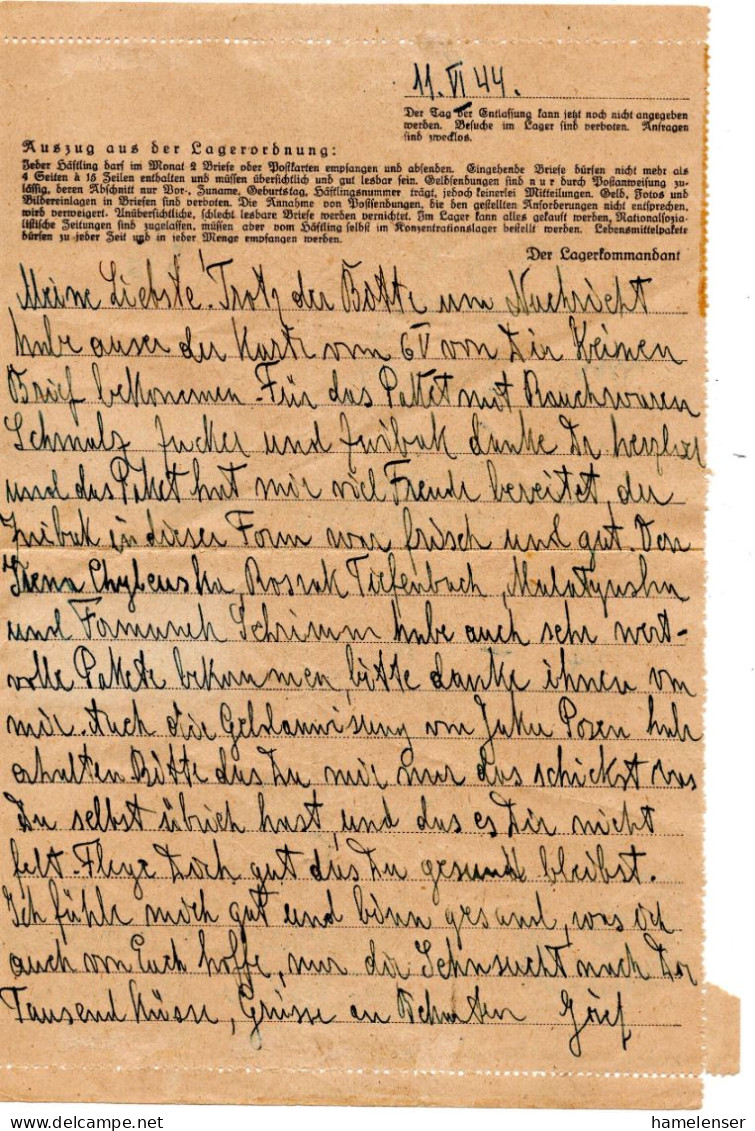 11. VI 44.
Der Tag der Entlassung kann jetzt noch nicht angegeben
werden. Besuche im Lager sind verboten. Anfragen
sind zwecklos.
Auszug aus der Lagerordnung:
Jeder Häftling darf im Monat 2 Briefe oder Postkarten empfangen und absenden. Eingehende Briefe dürfen nicht mehr als
4 Seiten à 15 Zeilen enthalten und müssen übersichtlich und gut lesbar sein. Geldsendungen sind nur durch Postanweisung zu-
lässig, deren Abschnitt nur Vor-, Zuname, Geburtstag, Häftlingsnummer trägt, jedoch keinerlei Mitteilungen. Geld, Fotos und
Bildereinlagen in Briefen sind verboten. Die Annahme von Postsendungen, die den gestellten Anforderungen nicht entsprechen,
wird verweigert. Unübersichtliche, schlecht lesbare Briefe werden vernichtet. Im Lager kann alles gekauft werden, Nationalsozia-
listische Zeitungen sind zugelassen, müssen aber vom Häftling selbst im Konzentrationslager bestellt werden. Lebensmittelpakete
dürfen zu jeder Zeit und in jeder Menge empfangen werden.
Der Lagerkommandant
Meine Liebste! Trotz der Bitte um Nachricht
habe auser der Karte vom 6 V von Dir Keinen
Brief bekommen. Für das Paket mit Rauchwaren
Schmalz Zucker und Zwibak danke Dir
und das Paket hat mir viel Freude bereitet, der
Zwibak in dieser Form war frisch und gut. Von
Irena Tiefenbach,
und Schrimm habe auch sehr wert-
volle Pakete bekommen, bitte danke ihnen von
mir. Auch die von Posen habe
erhalten Bitte das Du mir nur das schickst was
Du selbst übrich hast, und das es Dir nicht
felt. Flege Dich gut das Du gesund bleibst.
Ich fühle mich gut und binn gesund, was ich
auch von Euch hoffe, nur die Sehnsucht nach Dir
Tausend Küsse, Grüsse an
hamelenser